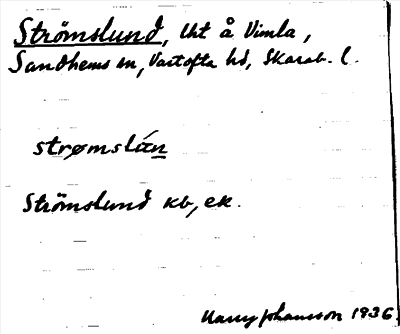 Strömslund, Uht å Vimla,
Sandhems sn, Vartofta hd, Skarab. l.
strømslán
Strömslund kb, ek.
Harry Johansson 1936.